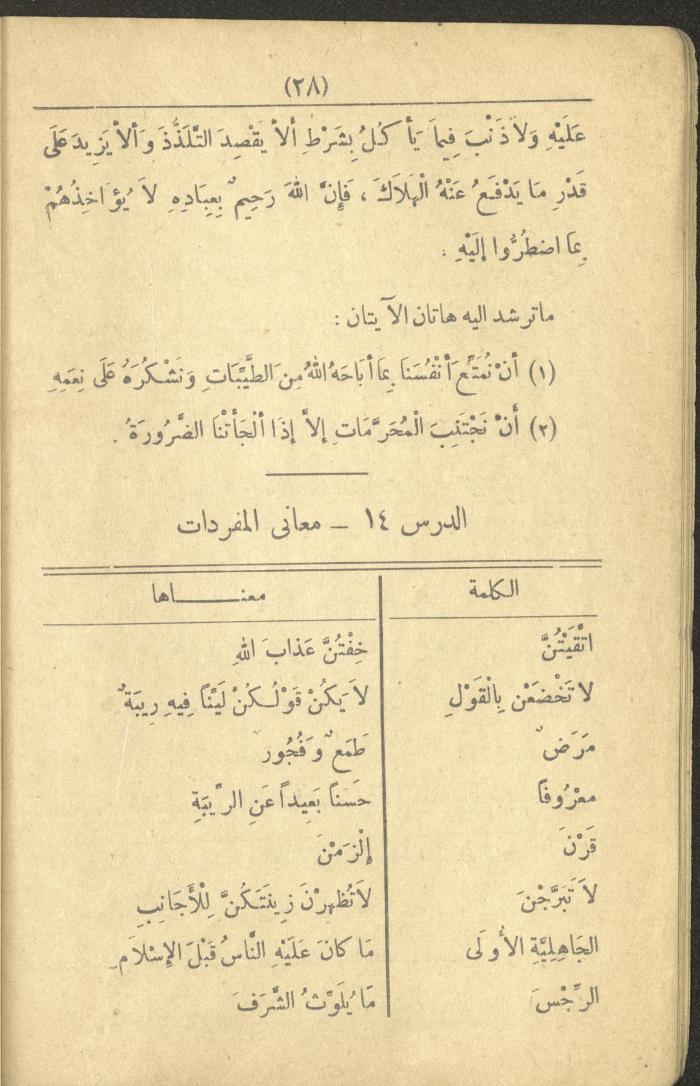 (٢٨)
عَلَيْهِ وَلاَ ذَنْبَ فِيمَا يَأكُلُ بِشَرْطِ أَلاَّ يَقْصِدَ التَّلَذُّذَ وَأَلاَّ يَزِيدَ عَلَى
قَدْرِ مَا يَدْفَعُ عَنْهُ الْهَلاَكَ ، فَإِنَّ اللهَ رَحِيمٌ بِعِبَادِهِ لاَ يُؤَاخِذُهُمْ
بِمَا اضطُرُّوا إِلَيْهِ .
ماترشد اليه هاتان الآيتان :
(١) أَنْ نُمَتِّعَ أَنْفُسَنَا بِمَا أَبَاحَهُ اللهُ مِنَ الطَّيِّبَاتِ وَنَشْكُرَهُ عَلَى نِعَمِهِ
(٢) أَنْ نَجْتَنِبَ الْمُحَرَّمَاتِ إِلاَّ إِذَا أَلْجَأَتْنَا الضَّرُورَةُ .
الدرس ١٤ ــ معانى المفردات
الكلمة معنـــــاها
اتَّقَيْتُنَّ خِفْتُنَّ عَذَابَ اللهِ
لا تَخْضَعْنَ بِالْقَوْلِ لاَ يَكُنْ قَوْلُكُنْ لَيِّنًا فِيهِ رِيبَةٌ
مَرَضٌ طَمَعٌ وَفُجُورٌ
معْرُوفًا حَسَنًا بَعِيداً عَنِ الرِّيبَةِ
قَرْنَ إِلْزَمْنَ
لاَ تَبَرَّجْنَ لاَ تُظْهِرْنَ زِينَتَكُنَّ لِلْأَجَانِبِ
الجَاهِلِيَّةِ الأُولَى مَا كَانَ عَلَيْهِ النَّاسُ قَبْلَ الإِسْلاَمِ
الرِّجْسَ مَا يُلَوِّثُ الشَّرَفَ